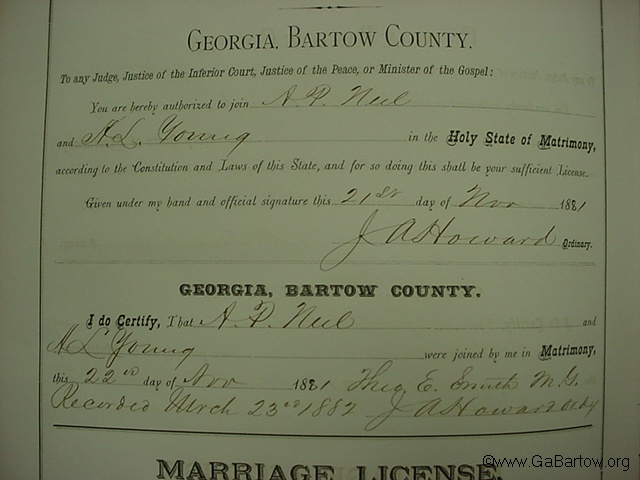 GEORGIA, BARTOW COUNTY.
To any Judge, Justice of the Inferior Court, Justice of the Peace, or Minister of the Gospel:
You are hereby authorized to join A. P. Neel
and H. L. Young in the Holy State of Matrimony,
according to the Constitution and Laws of this State, and for so doing this shall be your sufficient License.
Given under my hand and official signature this 21st day of Nov 1881
J A Howard Ordinary.
GEORGIA, BARTOW COUNTY.
I do Certify, That A. P. Neel and
H L Young were joined by me in Matrimony,
this 22nd day of Nov 1881 Theo E. Smith M.G.
Recorded March 23rd 1882 J A Howard Ordy
MARRIAGE LICENSE.
©www.GaBartow.org